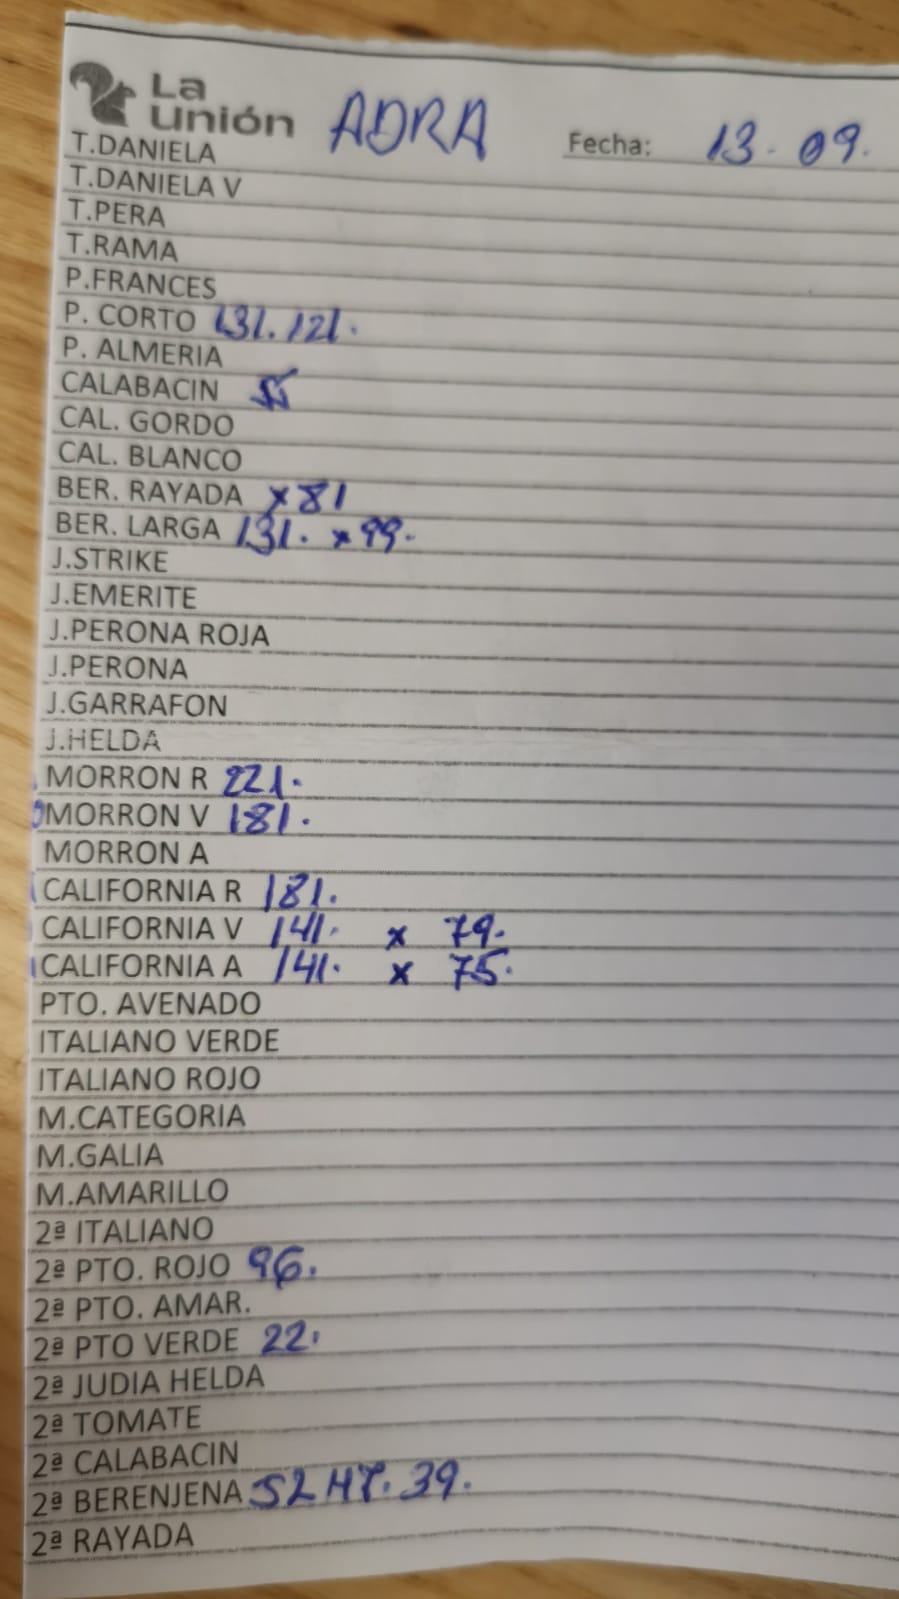 La
Unión ADRA Fecha: 13. 09.
T.DANIELA
T.DANIELA V
T.PERA
T.RAMA
P.FRANCES
P. CORTO 131. 121.
P. ALMERIA
CALABACIN
CAL. GORDO
CAL. BLANCO
BER. RAYADA x 81
BER. LARGA 131. x 99.
J.STRIKE
J.EMERITE
J.PERONA ROJA
J.PERONA
J.GARRAFON
J.HELDA
MORRON R 221.
MORRON V 181.
MORRON A
CALIFORNIA R 181.
CALIFORNIA V 141. x 79.
CALIFORNIA A 141. x 75.
PTO. AVENADO
ITALIANO VERDE
ITALIANO ROJO
M.CATEGORIA
M.GALIA
M.AMARILLO
2ª ITALIANO
2ª PTO. ROJO 96.
2ª PTO. AMAR.
2ª PTO VERDE 22.
2ª JUDIA HELDA
2ª TOMATE
2ª CALABACIN
2ª BERENJENA 39.
2ª RAYADA